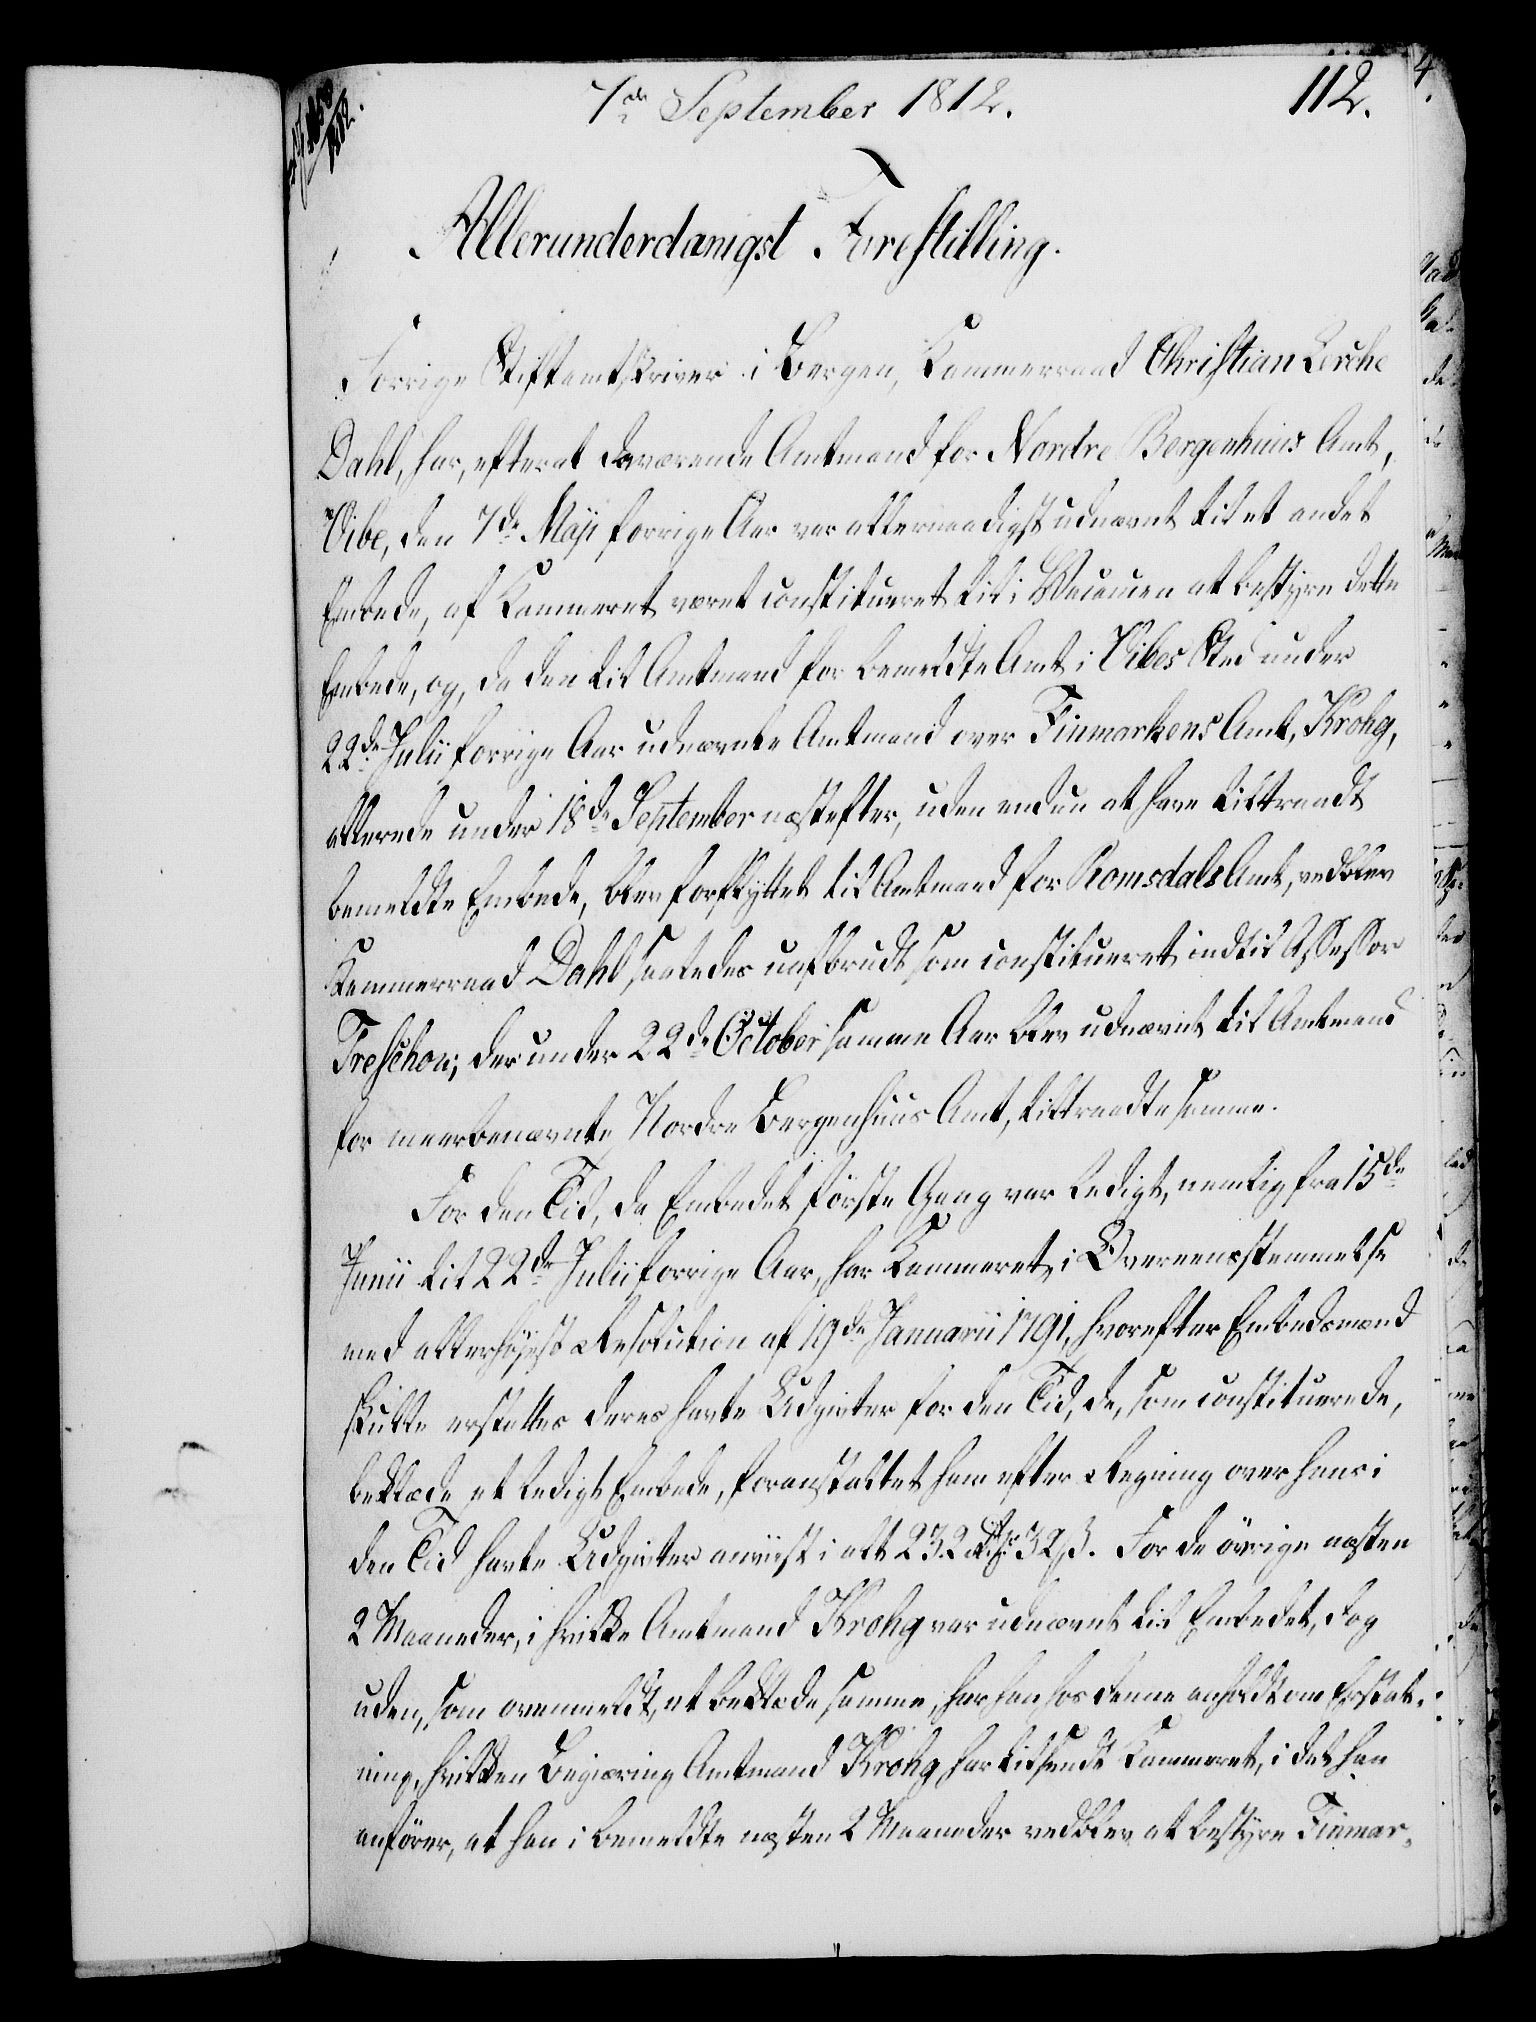 7de September 1812.
112.
Allerunderdanigst Forestilling.
Forrige Stiftamtskriver i Bergen, Kammerraad Christian Lerche
Dahl, har, efterat daværende Amtmand for Nordre Bergenhuus Amt,
Vibe, den 7de Maji forrige Aar var allernaadigst udnævnt til et andet
Embede, af Kammeret været constitueret til i Vacancen at bestyre dette
Embede, og, da den til Amtmand for bemeldte Amt i Vibes Sted under
22de Julii forrige Aar udnævnte Amtmand over Finmarkens Amt, Krohg,
allerede under 18de September næstefter, uden endnu at have tiltraadt
bemeldte Embede, blev forflyttet til Amtmand for Romsdals Amt, vedblev
Kammerraad Dahl saaledes uafbrudt som constitueret indtil Assessor
Treschow, der under 22de October samme Aar blev udnævnt til Amtmand
for meerbenævnte Nordre Bergenhuus Amt, tiltraadte samme.
For den Tid, da Embedet første Gang var ledigt, nemlig fra 15de
Junii til 22de Julii forrige Aar, har Kammeret, i Overeensstemmelse
med allerhøieste Resolution af 19de Januarii 1791, hvorefter Embedsmænd
skulle erstattes deres havte Udgivter for den Tid, de, som constituerede,
beklæde et ledigt Embede, foranstaltet ham efter Regning over hans i
den Tid havte Udgivter anviist i alt 232 Rdlr 32 s. For de øvrige næsten
2 Maaneder, i hvilke Amtmand Krohg var udnævnt til Embedet, dog
uden, som ovenmeldt, at beklæde samme, har han hos denne anholdt om Erstat-
ning, hvilken Begiæring Amtmand Krohg har tilsendt Kammeret, i det han
anfører, at han i bemeldte næsten 2 Maaneder vedblev at bestyre Finmar-